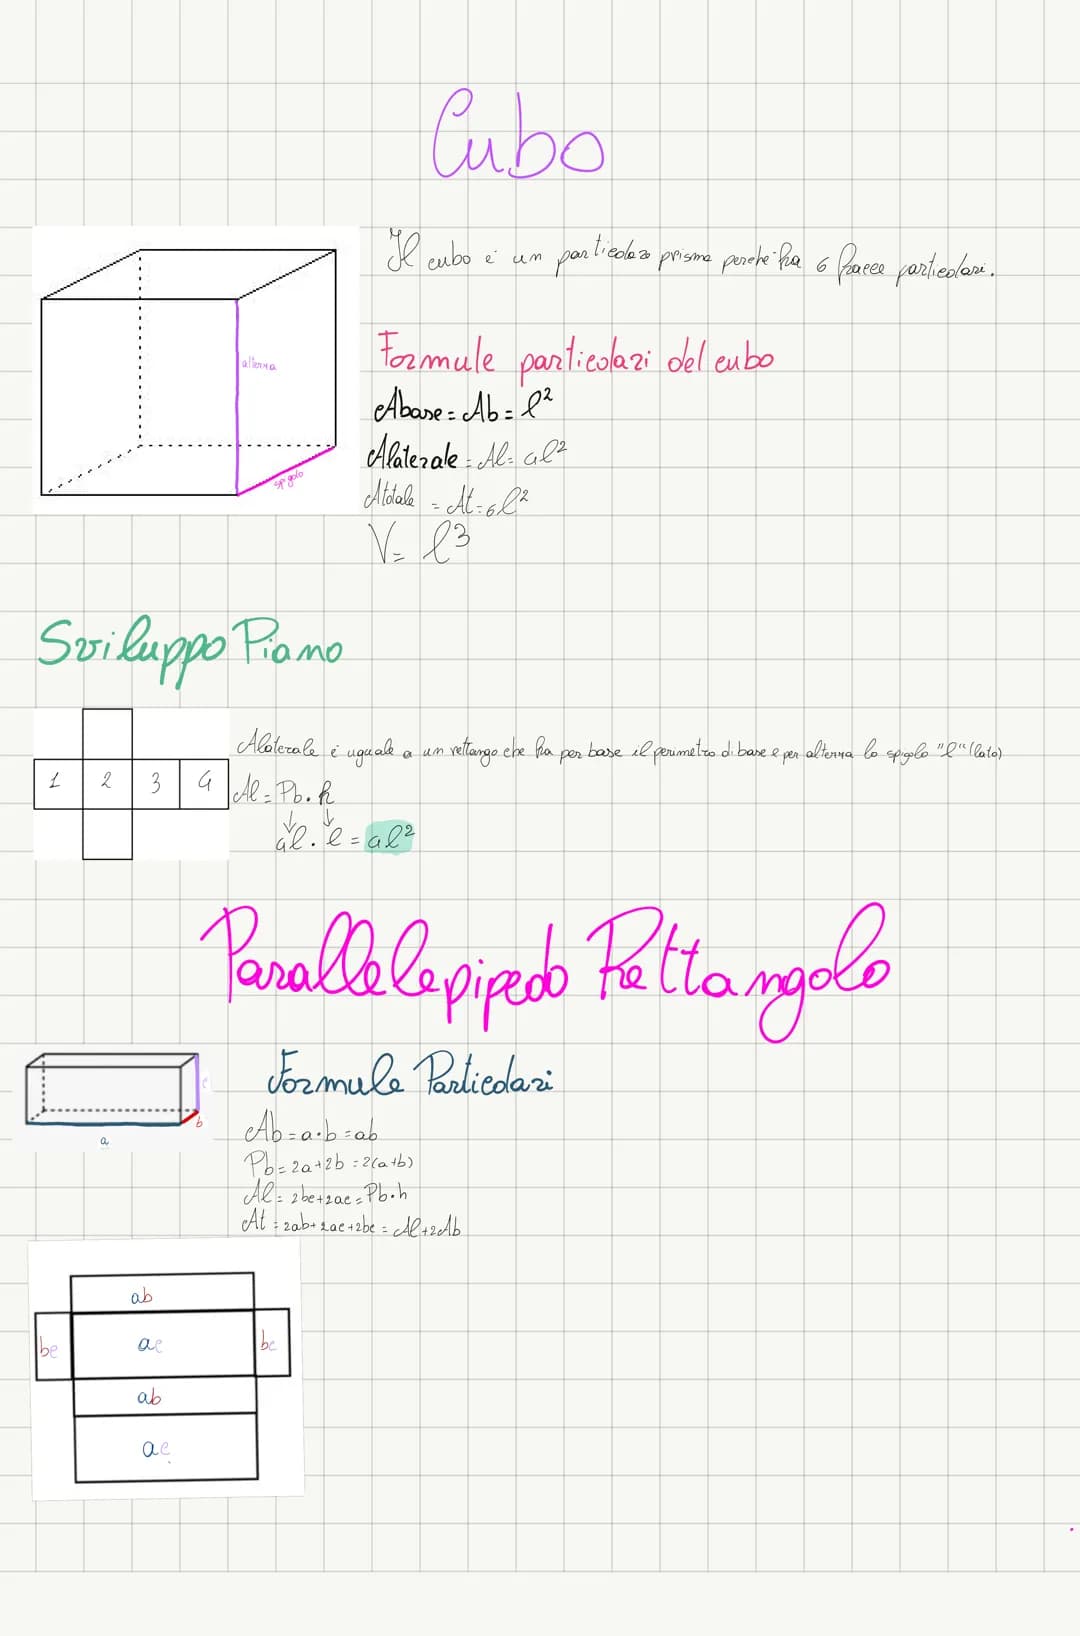 Cubo
Il cubo è un particolare prisma perchè ha 6 facce particolari.
altezza
spigolo
Formule particolari del cubo
Abase = Ab = l²
Alaterale = Al = 4l²
Atotale = At = 6l²
V = l³
Sviluppo Piano
1 2 3 4
Alaterale è uguale a un rettango che ha per base il perimetro di base e per altezza lo spigolo "l" (lato)
Al = Pb . h
↓ ↓
4l . l = 4l²
Parallelepipedo Rettangolo
Formule Particolari
a
b
c
Ab = a·b = ab
Pb = 2a+2b = 2(a+b)
Al = 2bc+2ac = Pb·h
At = 2ab+2ac+2bc = Al+2Ab
ab
bc ac bc
ab
ac